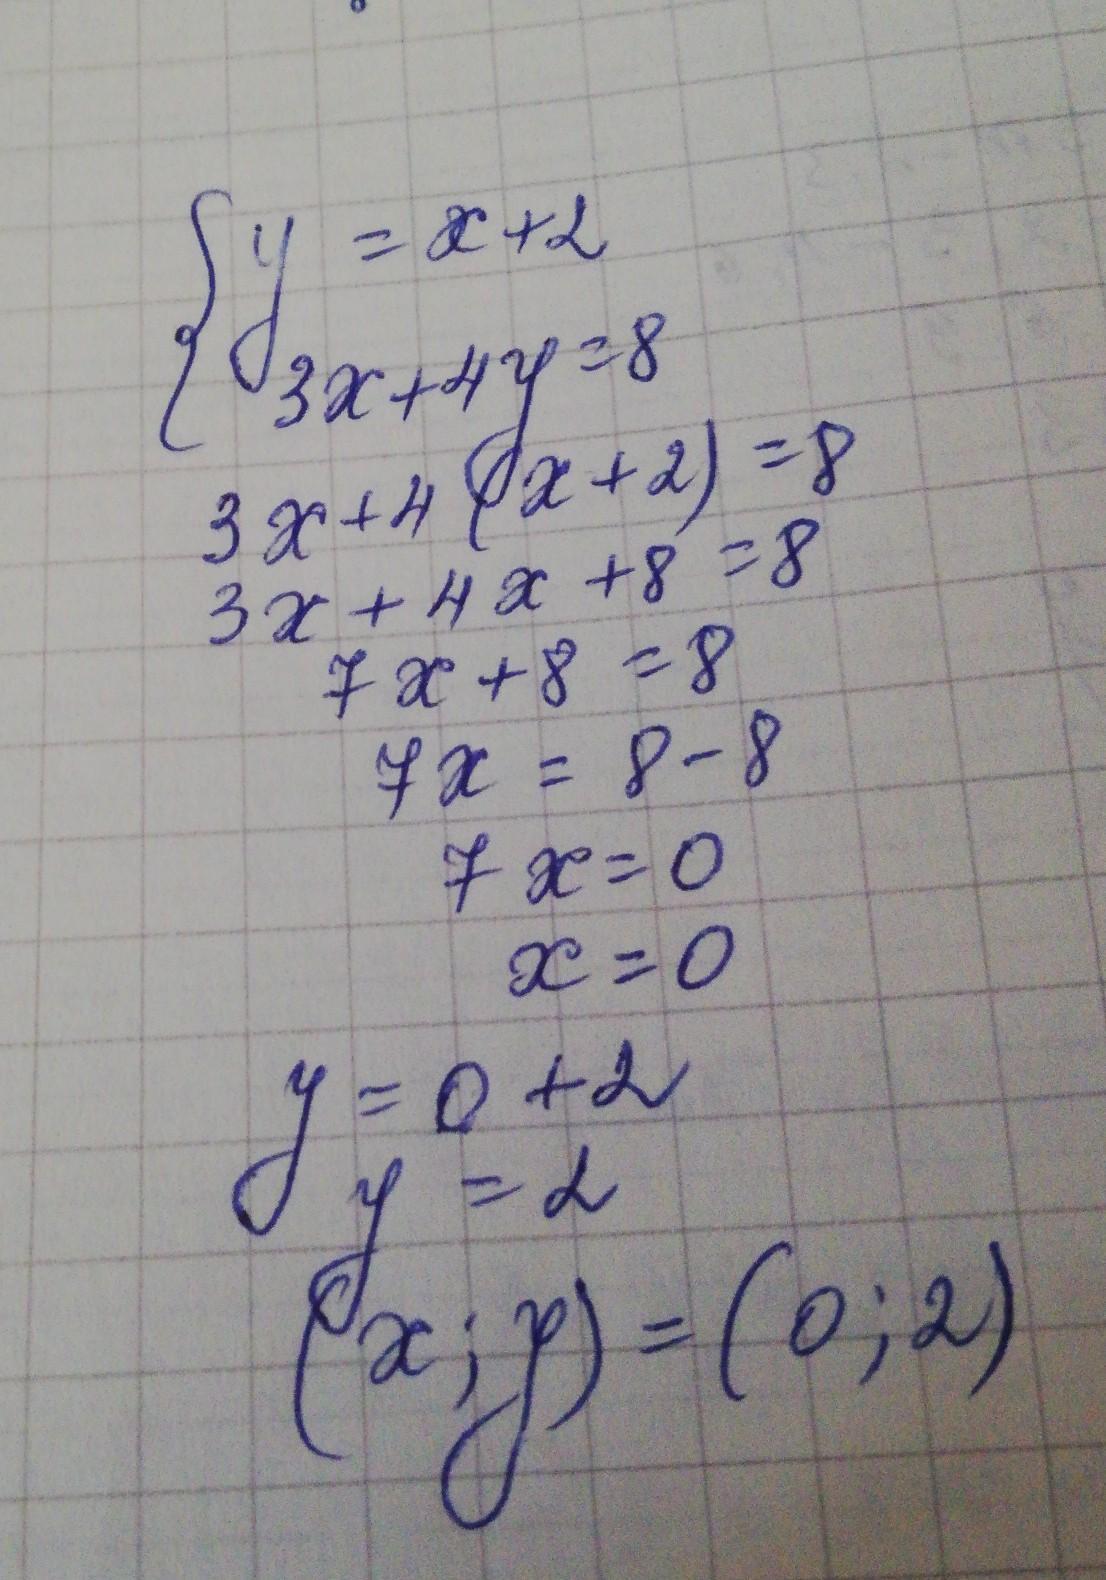 {y = x+2
3x+4y=8
3x+4(x+2)=8
3x+4x+8=8
7x+8=8
7x=8-8
7x=0
x=0
y=0+2
y=2
(x;y)=(0;2)